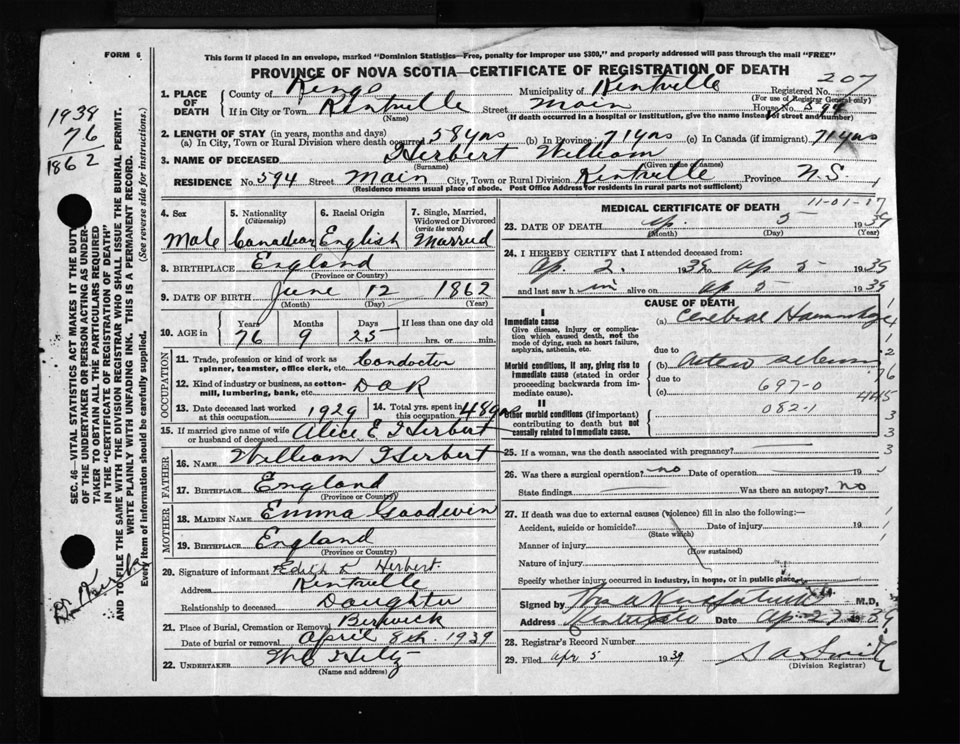 FORM 6
This form if placed in an envelope, marked "Dominion Statistics—Free, penalty for improper use $300," and properly addressed will pass through the mail "FREE"
PROVINCE OF NOVA SCOTIA—CERTIFICATE OF REGISTRATION OF DEATH
207
1. PLACE OF DEATH County of Kings Municipality of Kentville Registered No.
(For use of Registrar General only)
If in City or Town Kentville Street Main House No. 594
(Name) (If death occurred in a hospital or institution, give the name instead of street and number)
2. LENGTH OF STAY (in years, months and days)
(a) In City, Town or Rural Division where death occurred 58 yrs (b) In Province 71 yrs (c) In Canada (if immigrant) 71 yrs
3. NAME OF DECEASED Herbert William
(Surname) (Given or Christian names)
RESIDENCE No. 594 Street Main City, Town or Rural Division Kentville Province N.S.
(Residence means usual place of abode. Post Office Address for residents in rural parts not sufficient)
1938
76
1862
SEC. 46—VITAL STATISTICS ACT MAKES IT THE DUTY
OF THE UNDERTAKER OR PERSON ACTING AS UNDER-
TAKER TO OBTAIN ALL THE PARTICULARS REQUIRED
IN THE "CERTIFICATE OF REGISTRATION OF DEATH"
AND TO FILE THE SAME WITH THE DIVISION REGISTRAR WHO SHALL ISSUE THE BURIAL PERMIT.
WRITE PLAINLY WITH UNFADING INK. THIS IS A PERMANENT RECORD.
Every item of information should be carefully supplied. (See reverse side for instructions.)
4. Sex 5. Nationality (Citizenship) 6. Racial Origin 7. Single, Married, Widowed or Divorced (write the word)
Male Canadian English Married
8. BIRTHPLACE England
(Province or Country)
9. DATE OF BIRTH June 12 1862
(Month) (Day) (Year)
10. AGE in Years Months Days If less than one day old
76 9 25 hrs. or min.
OCCUPATION
11. Trade, profession or kind of work as spinner, teamster, office clerk, etc. Conductor
12. Kind of industry or business, as cotton-mill, lumbering, bank, etc. DAR
13. Date deceased last worked at this occupation 1929 14. Total yrs. spent in this occupation 48 yrs
15. If married give name of wife or husband of deceased Alice E Herbert
FATHER
16. NAME William Herbert
17. BIRTHPLACE England
(Province or Country)
MOTHER
18. MAIDEN NAME Emma Goodwin
19. BIRTHPLACE England
(Province or Country)
20. Signature of informant Edith L Herbert
Address Kentville
Relationship to deceased Daughter
21. Place of Burial, Cremation or Removal Berwick
Date of burial or removal April 8th 1939
22. UNDERTAKER
(Name and address)
MEDICAL CERTIFICATE OF DEATH
11-01-17
23. DATE OF DEATH Ap. 5 1939
(Month) (Day) (Year)
24. I HEREBY CERTIFY that I attended deceased from:
Ap. 2. 1939 to Ap 5 1939
and last saw him alive on Ap 5 1939
CAUSE OF DEATH
I
Immediate cause
Give disease, injury or complication which caused death, not the mode of dying, such as heart failure, asphyxia, asthenia, etc.
(a) Cerebral Haemorrhage
due to
Morbid conditions, if any, giving rise to immediate cause (stated in order proceeding backwards from immediate cause).
(b) Arterio
due to
(c) 697-0
II
082-1
Other morbid conditions (if important) contributing to death but not causally related to immediate cause.
25. If a woman, was the death associated with pregnancy?
26. Was there a surgical operation? no Date of operation 19
State findings Was there an autopsy? no
27. If death was due to external causes (violence) fill in also the following:—
Accident, suicide or homicide? Date of injury 19
(State which)
Manner of injury
(How sustained)
Nature of injury
Specify whether injury occurred in industry, in home, or in public place
Signed by M.D.
Address Date Ap. 27 1939
28. Registrar's Record Number
29. Filed Apr 5 1939 S A Smith
(Division Registrar)